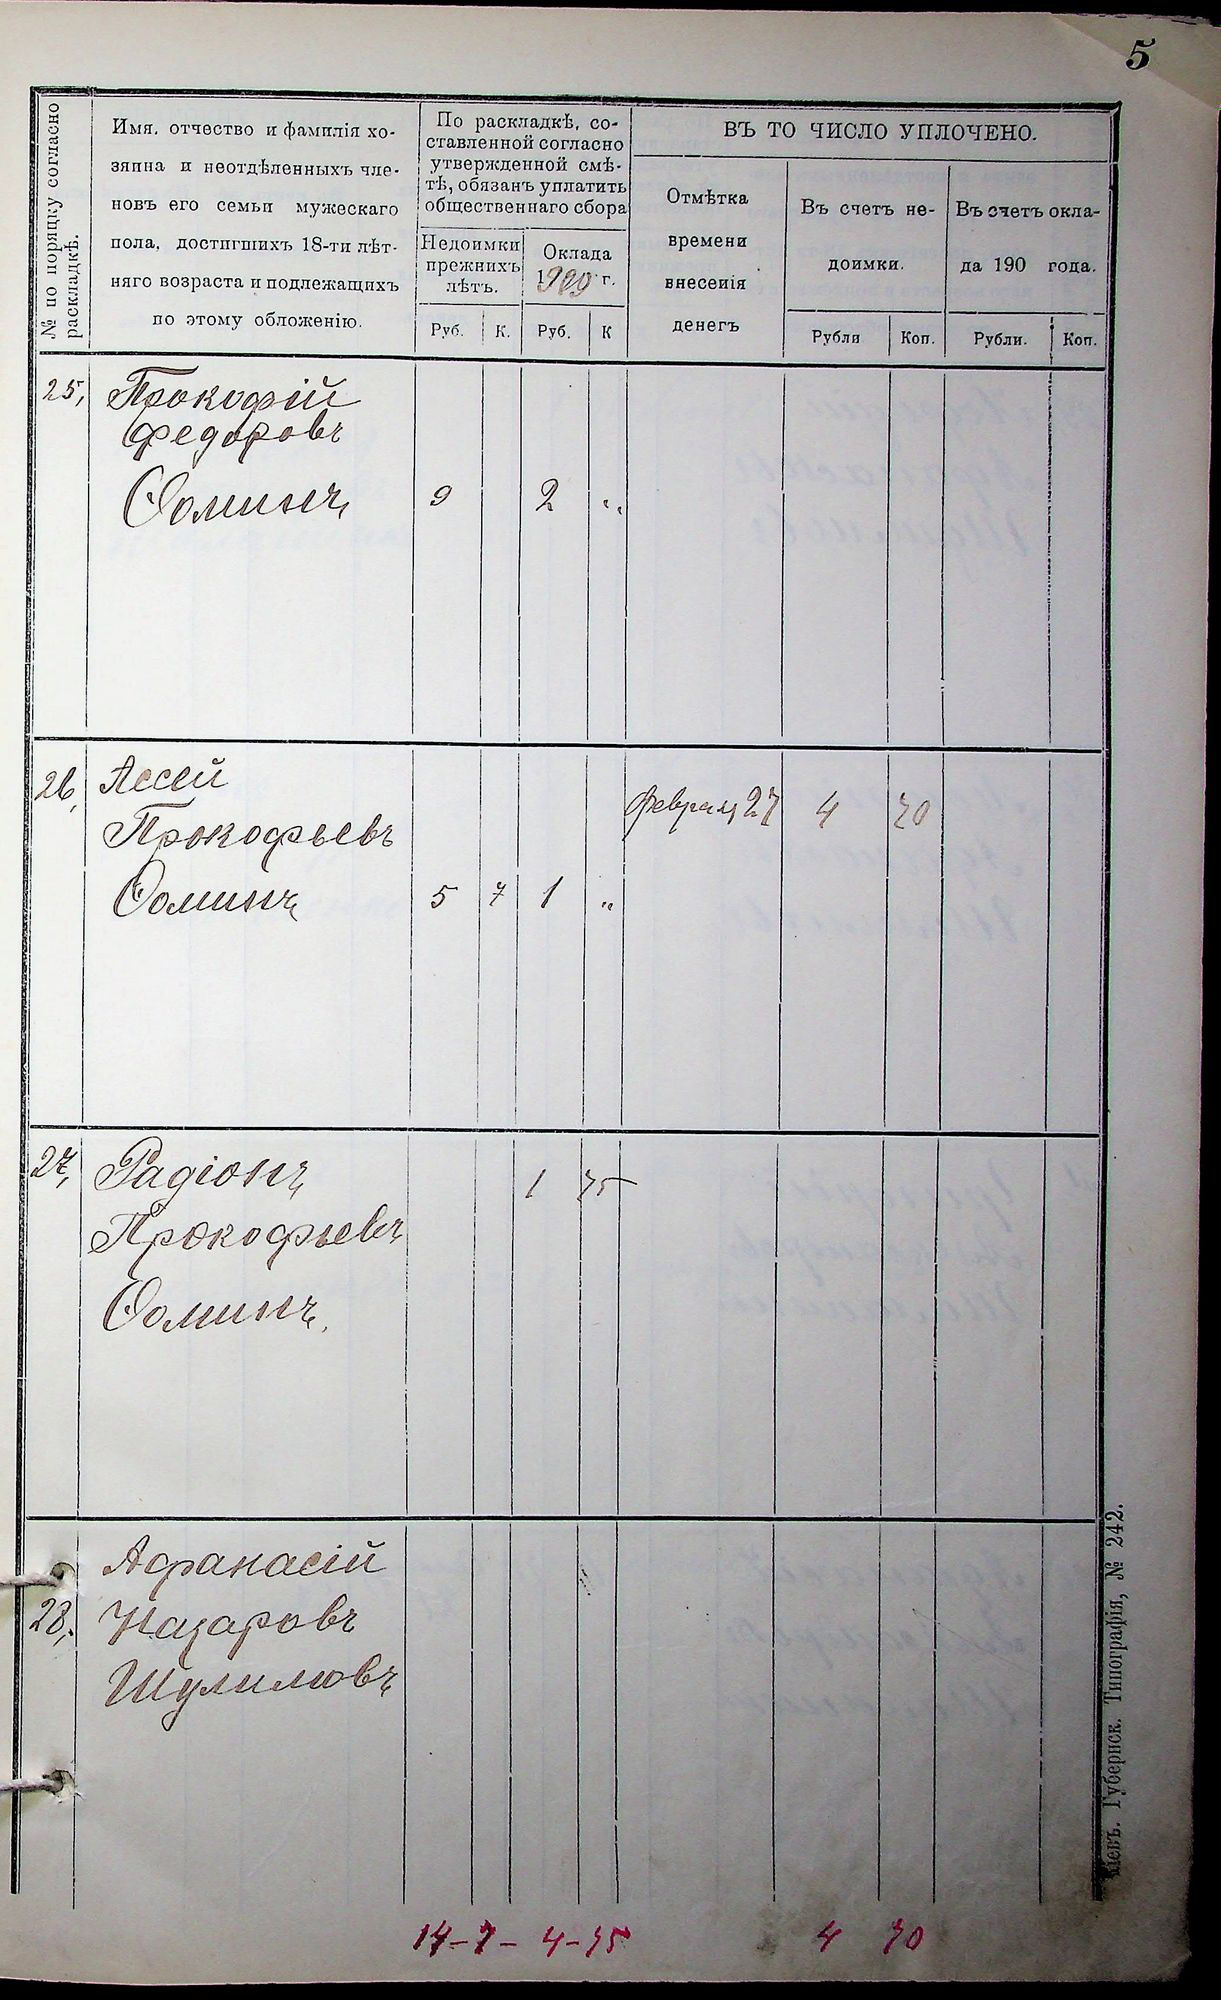 5
№ по порядку согласно
раскладкѣ.
Имя, отчество и фамилія хо-
зяина и неотдѣленныхъ чле-
новъ его семьи мужескаго
пола, достигшихъ 18-ти лѣт-
няго возраста и подлежащихъ
по этому обложенію.
По раскладкѣ, со-
ставленной согласно
утвержденной смѣ-
тѣ, обязанъ уплатить
общественнаго сбора
Недоимки
прежнихъ
лѣтъ.
Оклада
1909 г.
Руб. К. Руб. К
ВЪ ТО ЧИСЛО УПЛОЧЕНО.
Отмѣтка
времени
внесенія
денегъ
Въ счетъ не-
доимки.
Въ счетъ окла-
да 190 года.
Рубли Коп. Рубли. Коп.
25, Прокофій
Федоровъ
Ѳоминъ 9 2 "
26, Ѧссей
Прокофьевъ февраля 27 4 70
Ѳоминъ 5 7 1 "
27, Радіонъ 1 75
Прокофьевъ
Ѳоминъ.
Афанасій
28, Назаровъ
Шулимовъ
14-7- 4-75 4 70
Кіевъ. Губернск. Типографія, № 242.